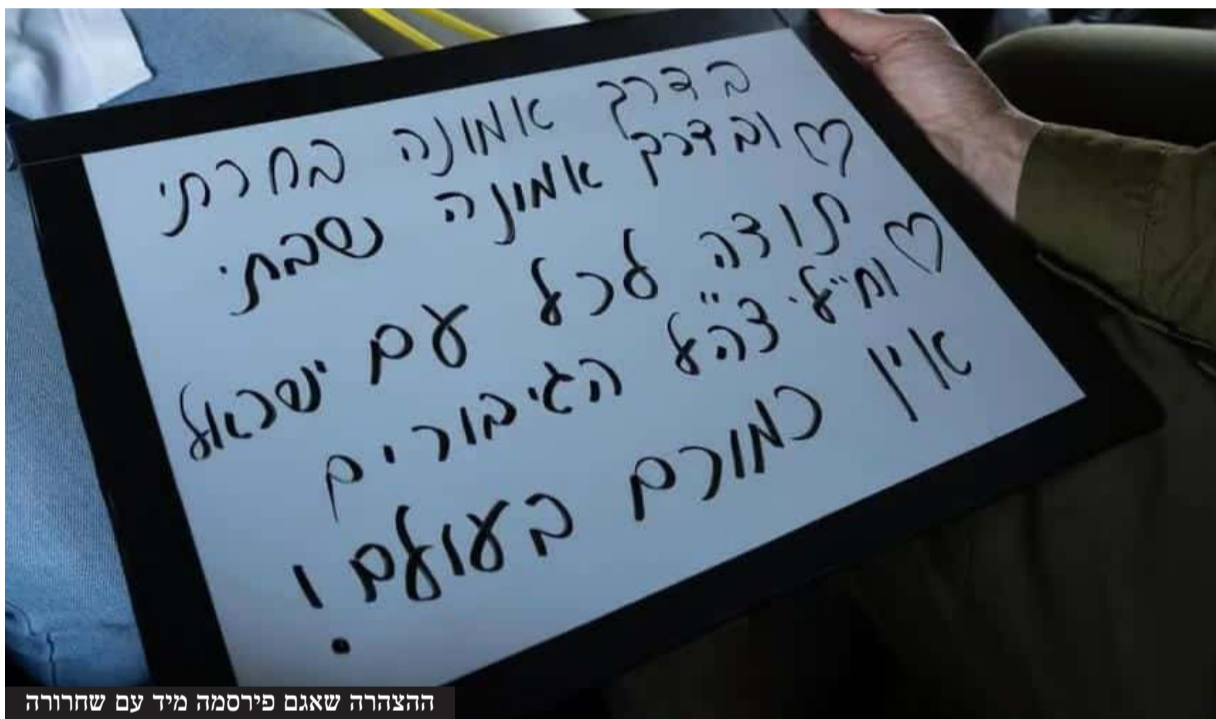 בדרך אמונה בחרתי
ובדרך אמונה שבתי.
תודה לכל עם ישראל
וחיילי צה"ל הגיבורים
אין כמוכם בעולם!
ההצהרה שאגם פירסמה מיד עם שחרורה